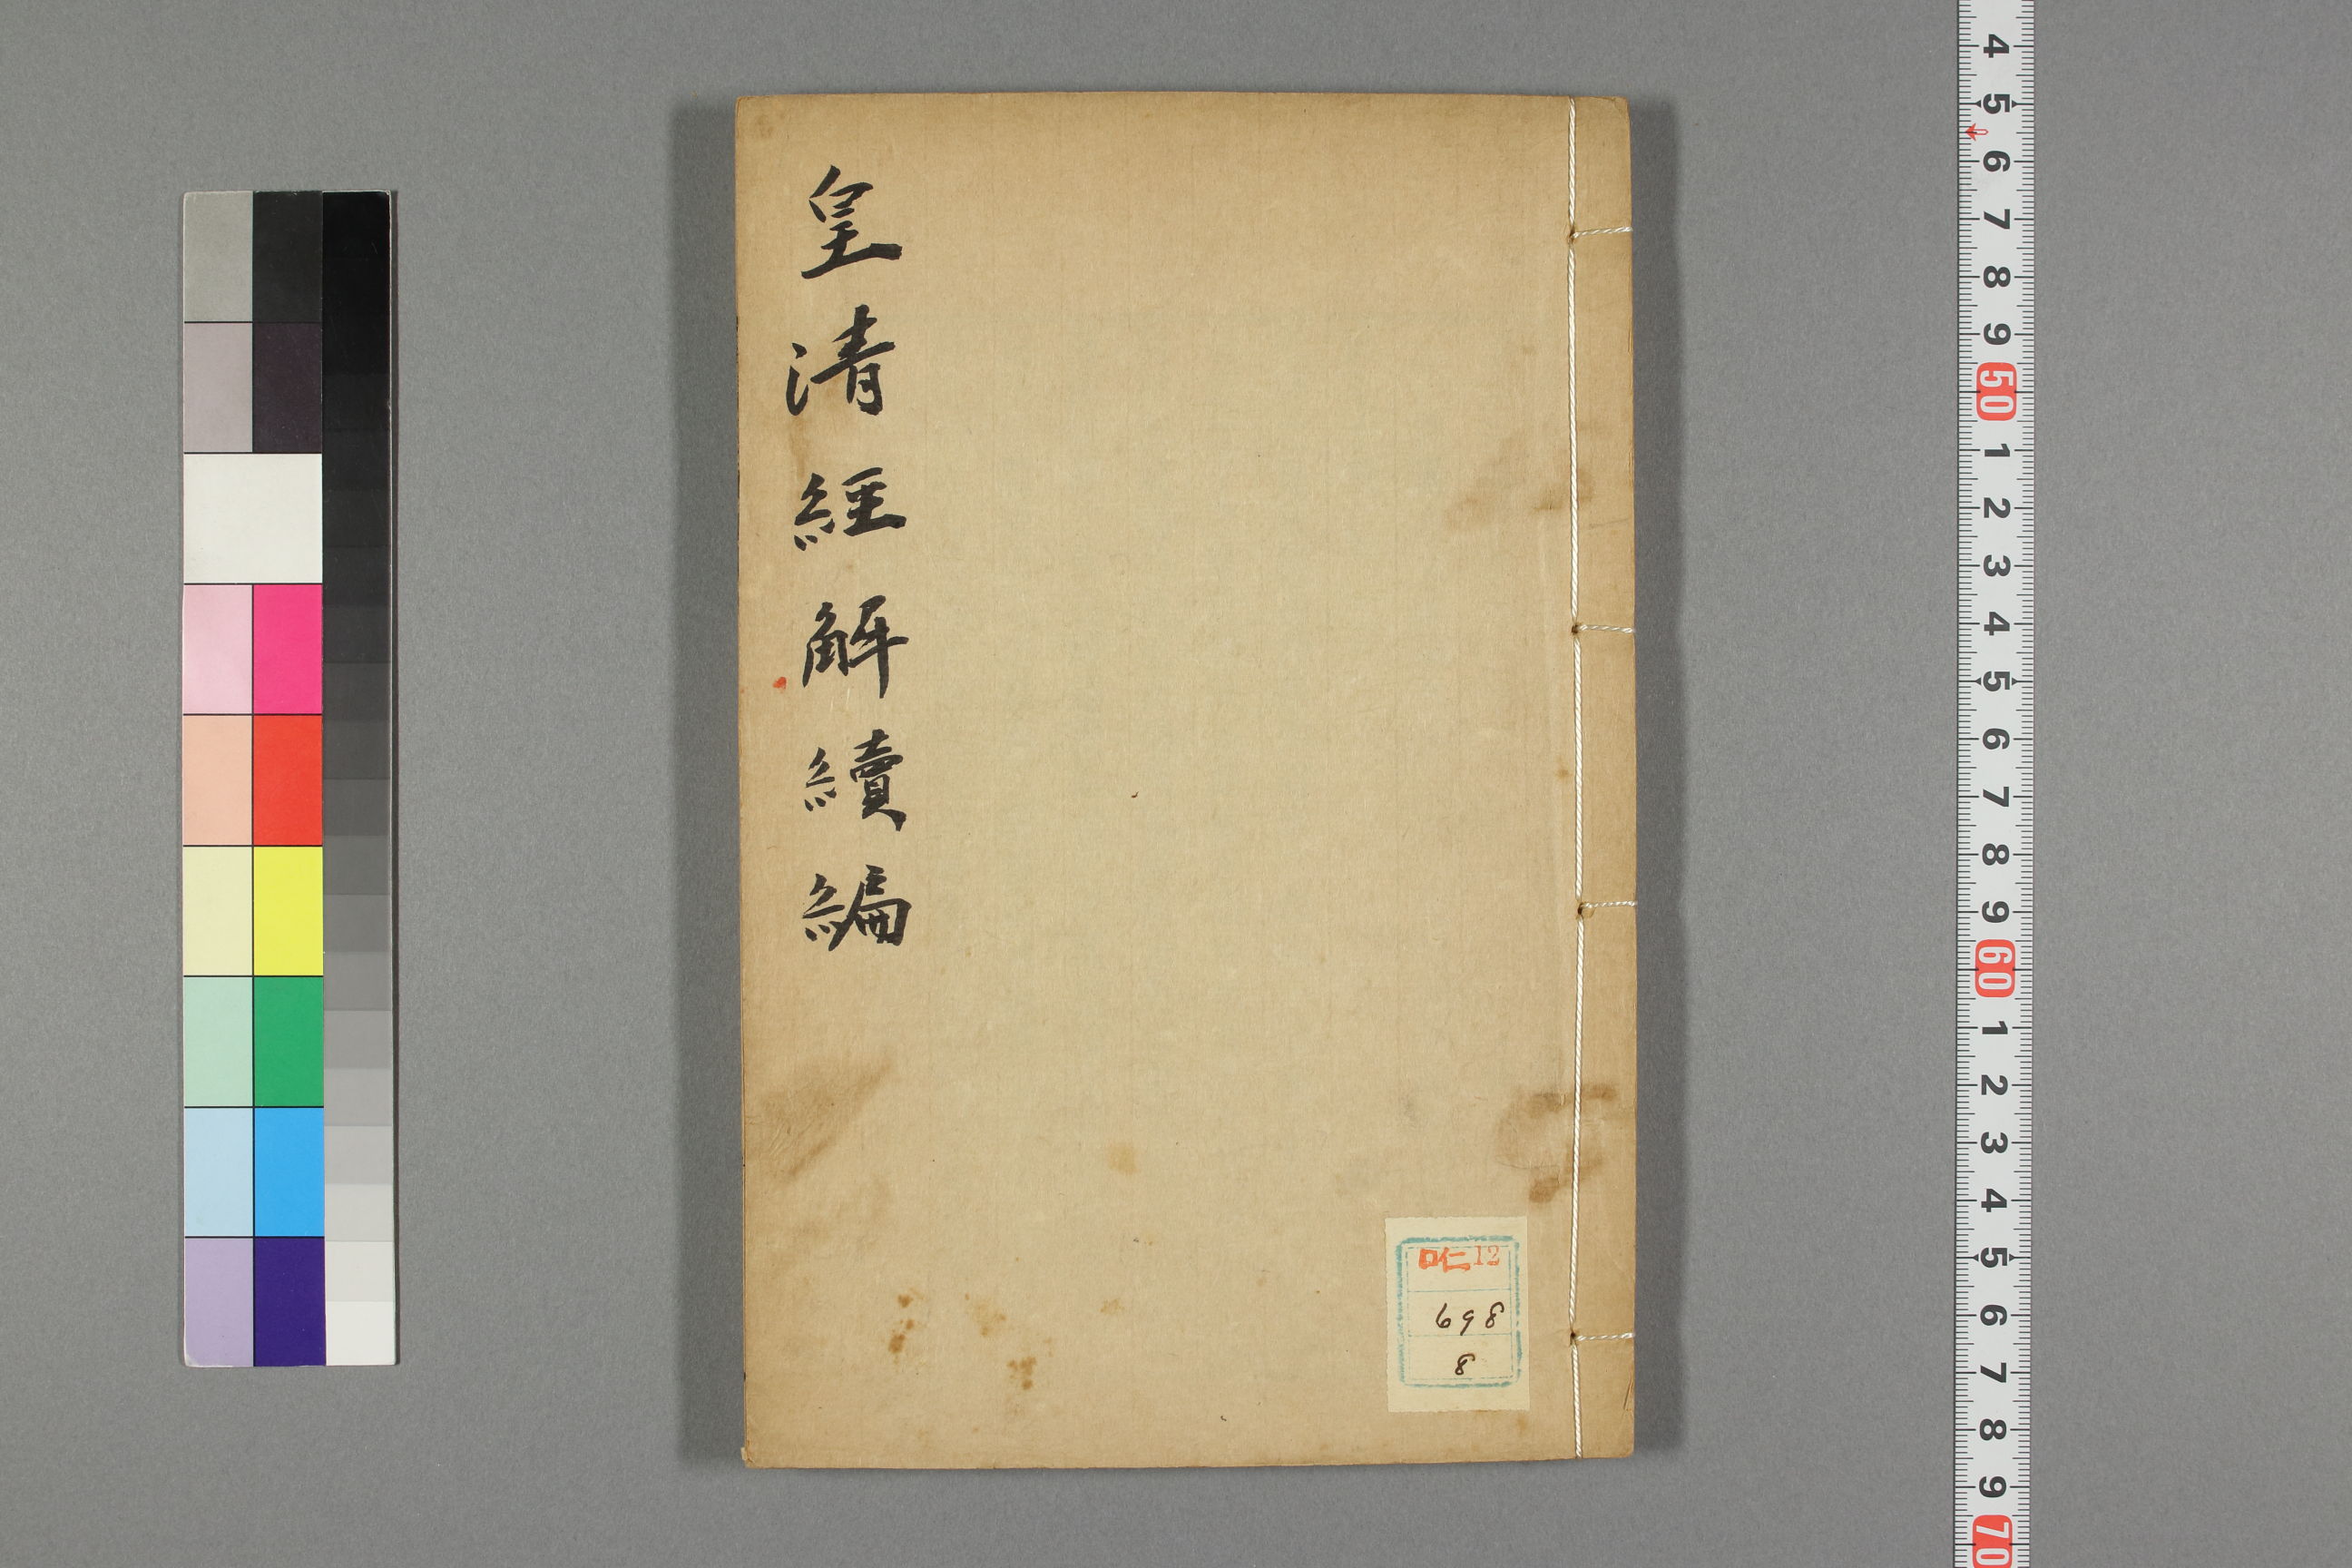 皇清經解續編
口仁12
698
8
4
5
6
7
8
9
50
1
2
3
4
5
6
7
8
9
60
1
2
3
4
5
6
7
8
9
70